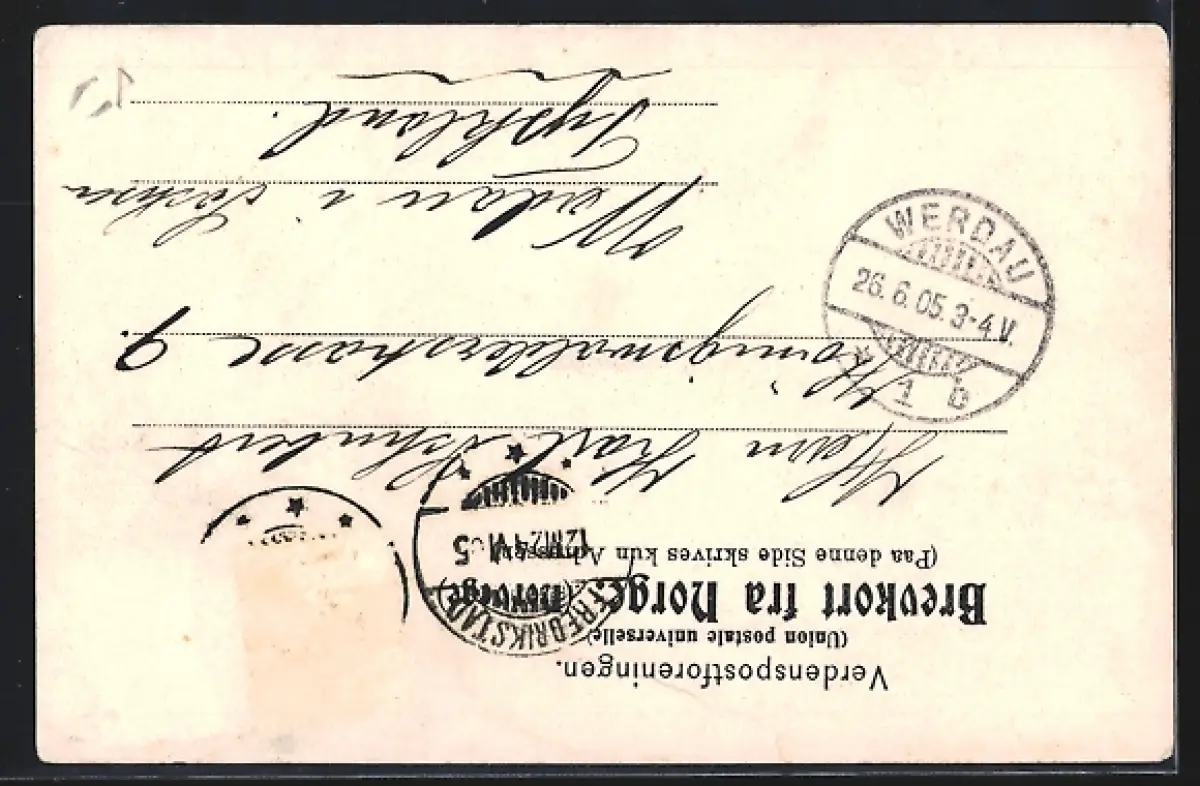 Verdenspostforeningen.
(Union postale universelle)
Brevkort fra Norge. (Norvège)
(Paa denne Side skrives kun Adressen)
FREDRIKSTAD
12M 24 VI 05
Herrn Karl Schubert
Königswalderstrasse 9.
Werdau i Sachsen
Tyskland.
WERDAU
26.6.05.3-4V.
1 b